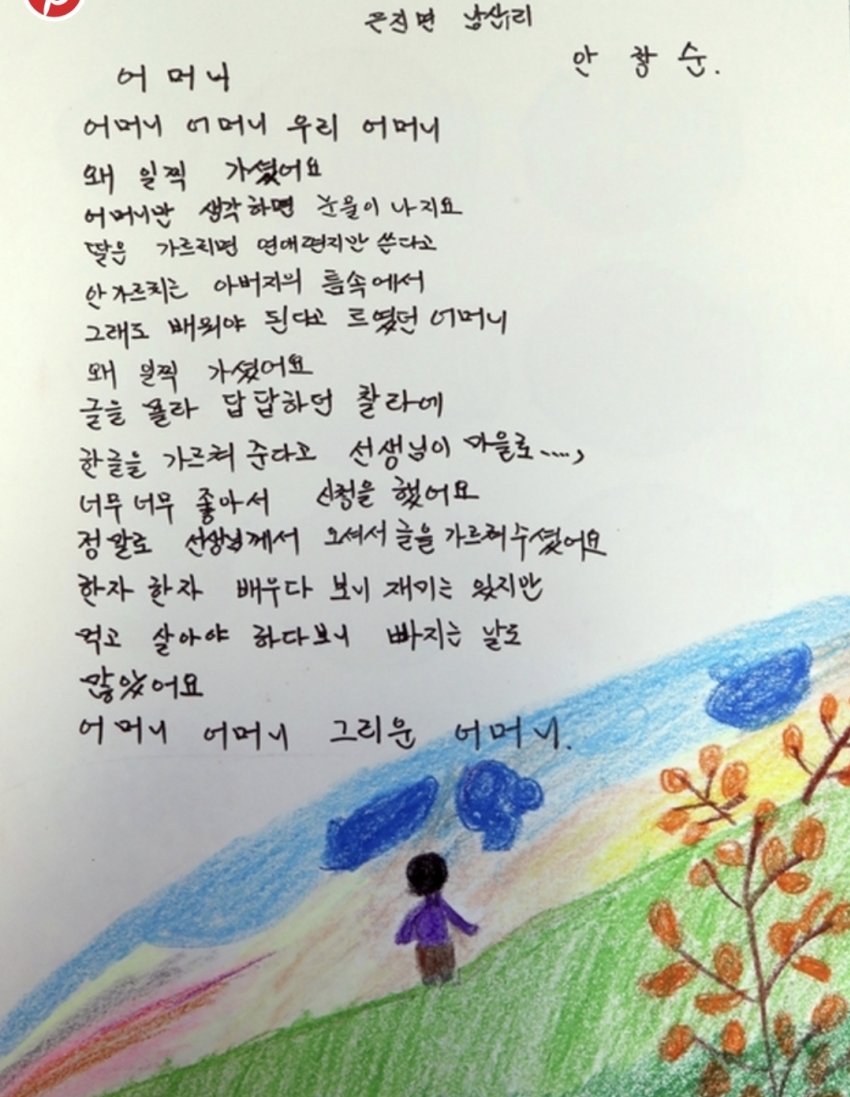 근전면 낭산리
안 창 순.
어 머 니
어머니 어머니 우리 어머니
왜 일찍 가셨어요
어머니만 생각하면 눈물이 나지요
딸은 가르리면 연애편지만 쓴다고
안가르치는 아버지의 틈속에서
그래도 배워야 된다고 르였던 어머니
왜 일찍 가셨어요
글을 몰라 답답하던 찰라에
한글을 가르쳐 준다고 선생님이 마을로....,
너무너무 좋아서 신청을 했어요
정말로 선생님께서 오셔서 글을 가르쳐주셨어요
한자 한자 배우다 보니 재미는 있지만
먹고 살아야 하다보니 빠지는 날도
많았어요
어머니 어머니 그리운 어머니.